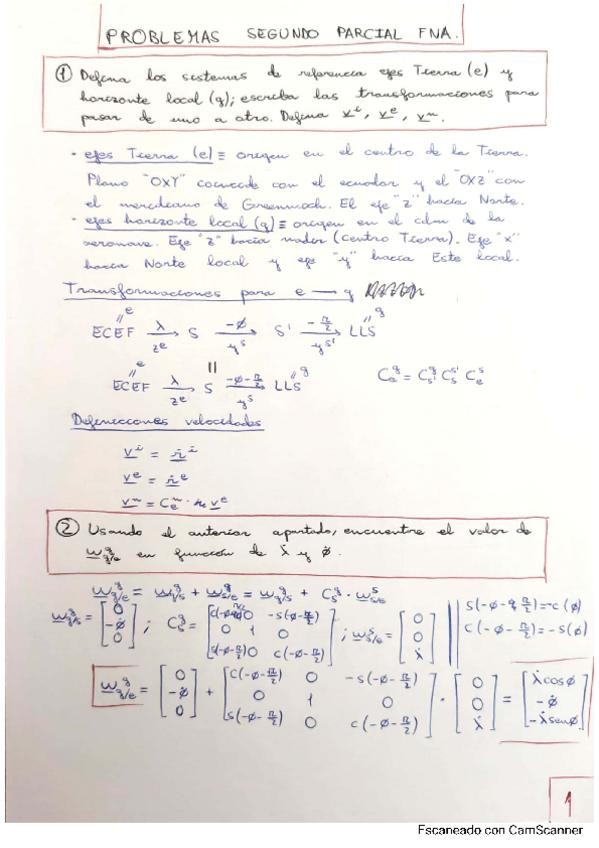 PROBLEMAS SEGUNDO PARCIAL FNA.
① Defina los sistemas de referencia ejes Tierra (e) y
horizonte local (g); escriba las transformaciones para
pasar de uno a otro. Defina v^i, v^e, v^n.
• ejes Tierra (e) ≡ origen en el centro de la Tierra.
Plano "OXY" coincide con el ecuador y el "OXZ" con
el meridiano de Greenwich. El eje "z" hacia Norte.
• ejes horizonte local (g) ≡ origen en el cdm de la
aeronave. Eje "z" hacia nadir (centro Tierra). Eje "x"
hacia Norte local y eje "y" hacia Este local.
Transformaciones para e → g
e g
ECEF λ→ z^e S -ø→ y^s S' -π/2→ y^s' LLS
e = g
ECEF λ→ z^e S -ø-π/2→ y^s LLS C_e^g = C_s'^g C_s^s' C_e^s
Definiciones velocidades
v^i = ṙ^i
v^e = ṙ^e
v^n = C_e^n · v^e
② Usando el anterior apartado, encuentre el valor de
w_g/e^g en función de λ̇ y ø̇.
w_g/e^g = w_g/s^g + w_s/e^g = w_g/s^g + C_s^g · w_s/e^s
w_g/s^g = [0; -ø̇; 0]; C_s^g = [c(-ø-π/2) 0 -s(-ø-π/2); 0 1 0; s(-ø-π/2) 0 c(-ø-π/2)]; w_s/e^s = [0; 0; λ̇] || s(-ø-π/2) = -c(ø)
c(-ø-π/2) = -s(ø)
w_g/e^g = [0; -ø̇; 0] + [c(-ø-π/2) 0 -s(-ø-π/2); 0 1 0; s(-ø-π/2) 0 c(-ø-π/2)] · [0; 0; λ̇] = [λ̇cosø; -ø̇; -λ̇senø]
1
Escaneado con CamScanner